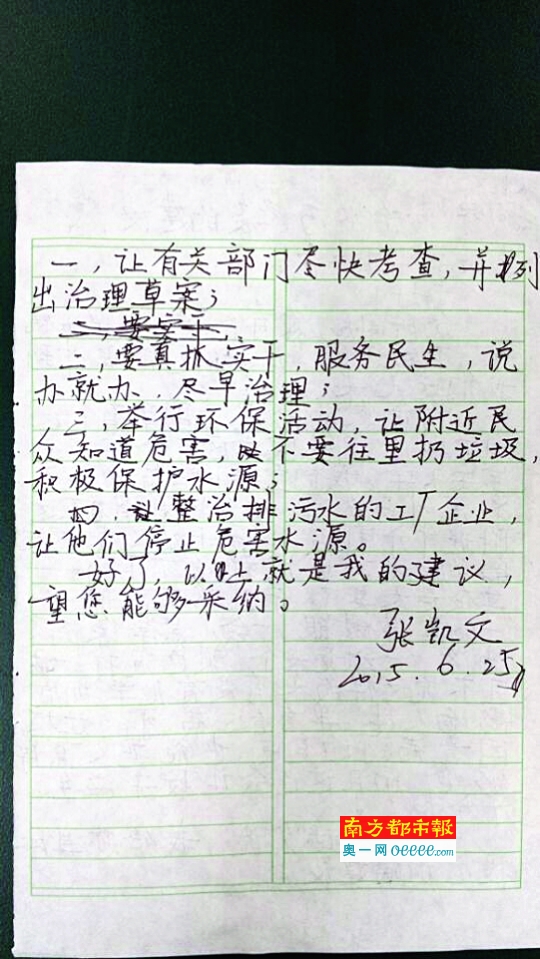 一，让有关部门尽快考查，并列
出治理草案；
二，要真抓实干，服务民生，说
办就办，尽早治理；
三，举行环保活动，让附近民
众知道危害，不要往里扔垃圾，
积极保护水源；
四，整治排污水的工厂企业，
让他们停止危害水源。
好了，以上就是我的建议，
望您能够采纳。
张凯文
2015.6.25
南方都市報
奥一网oeeee.com